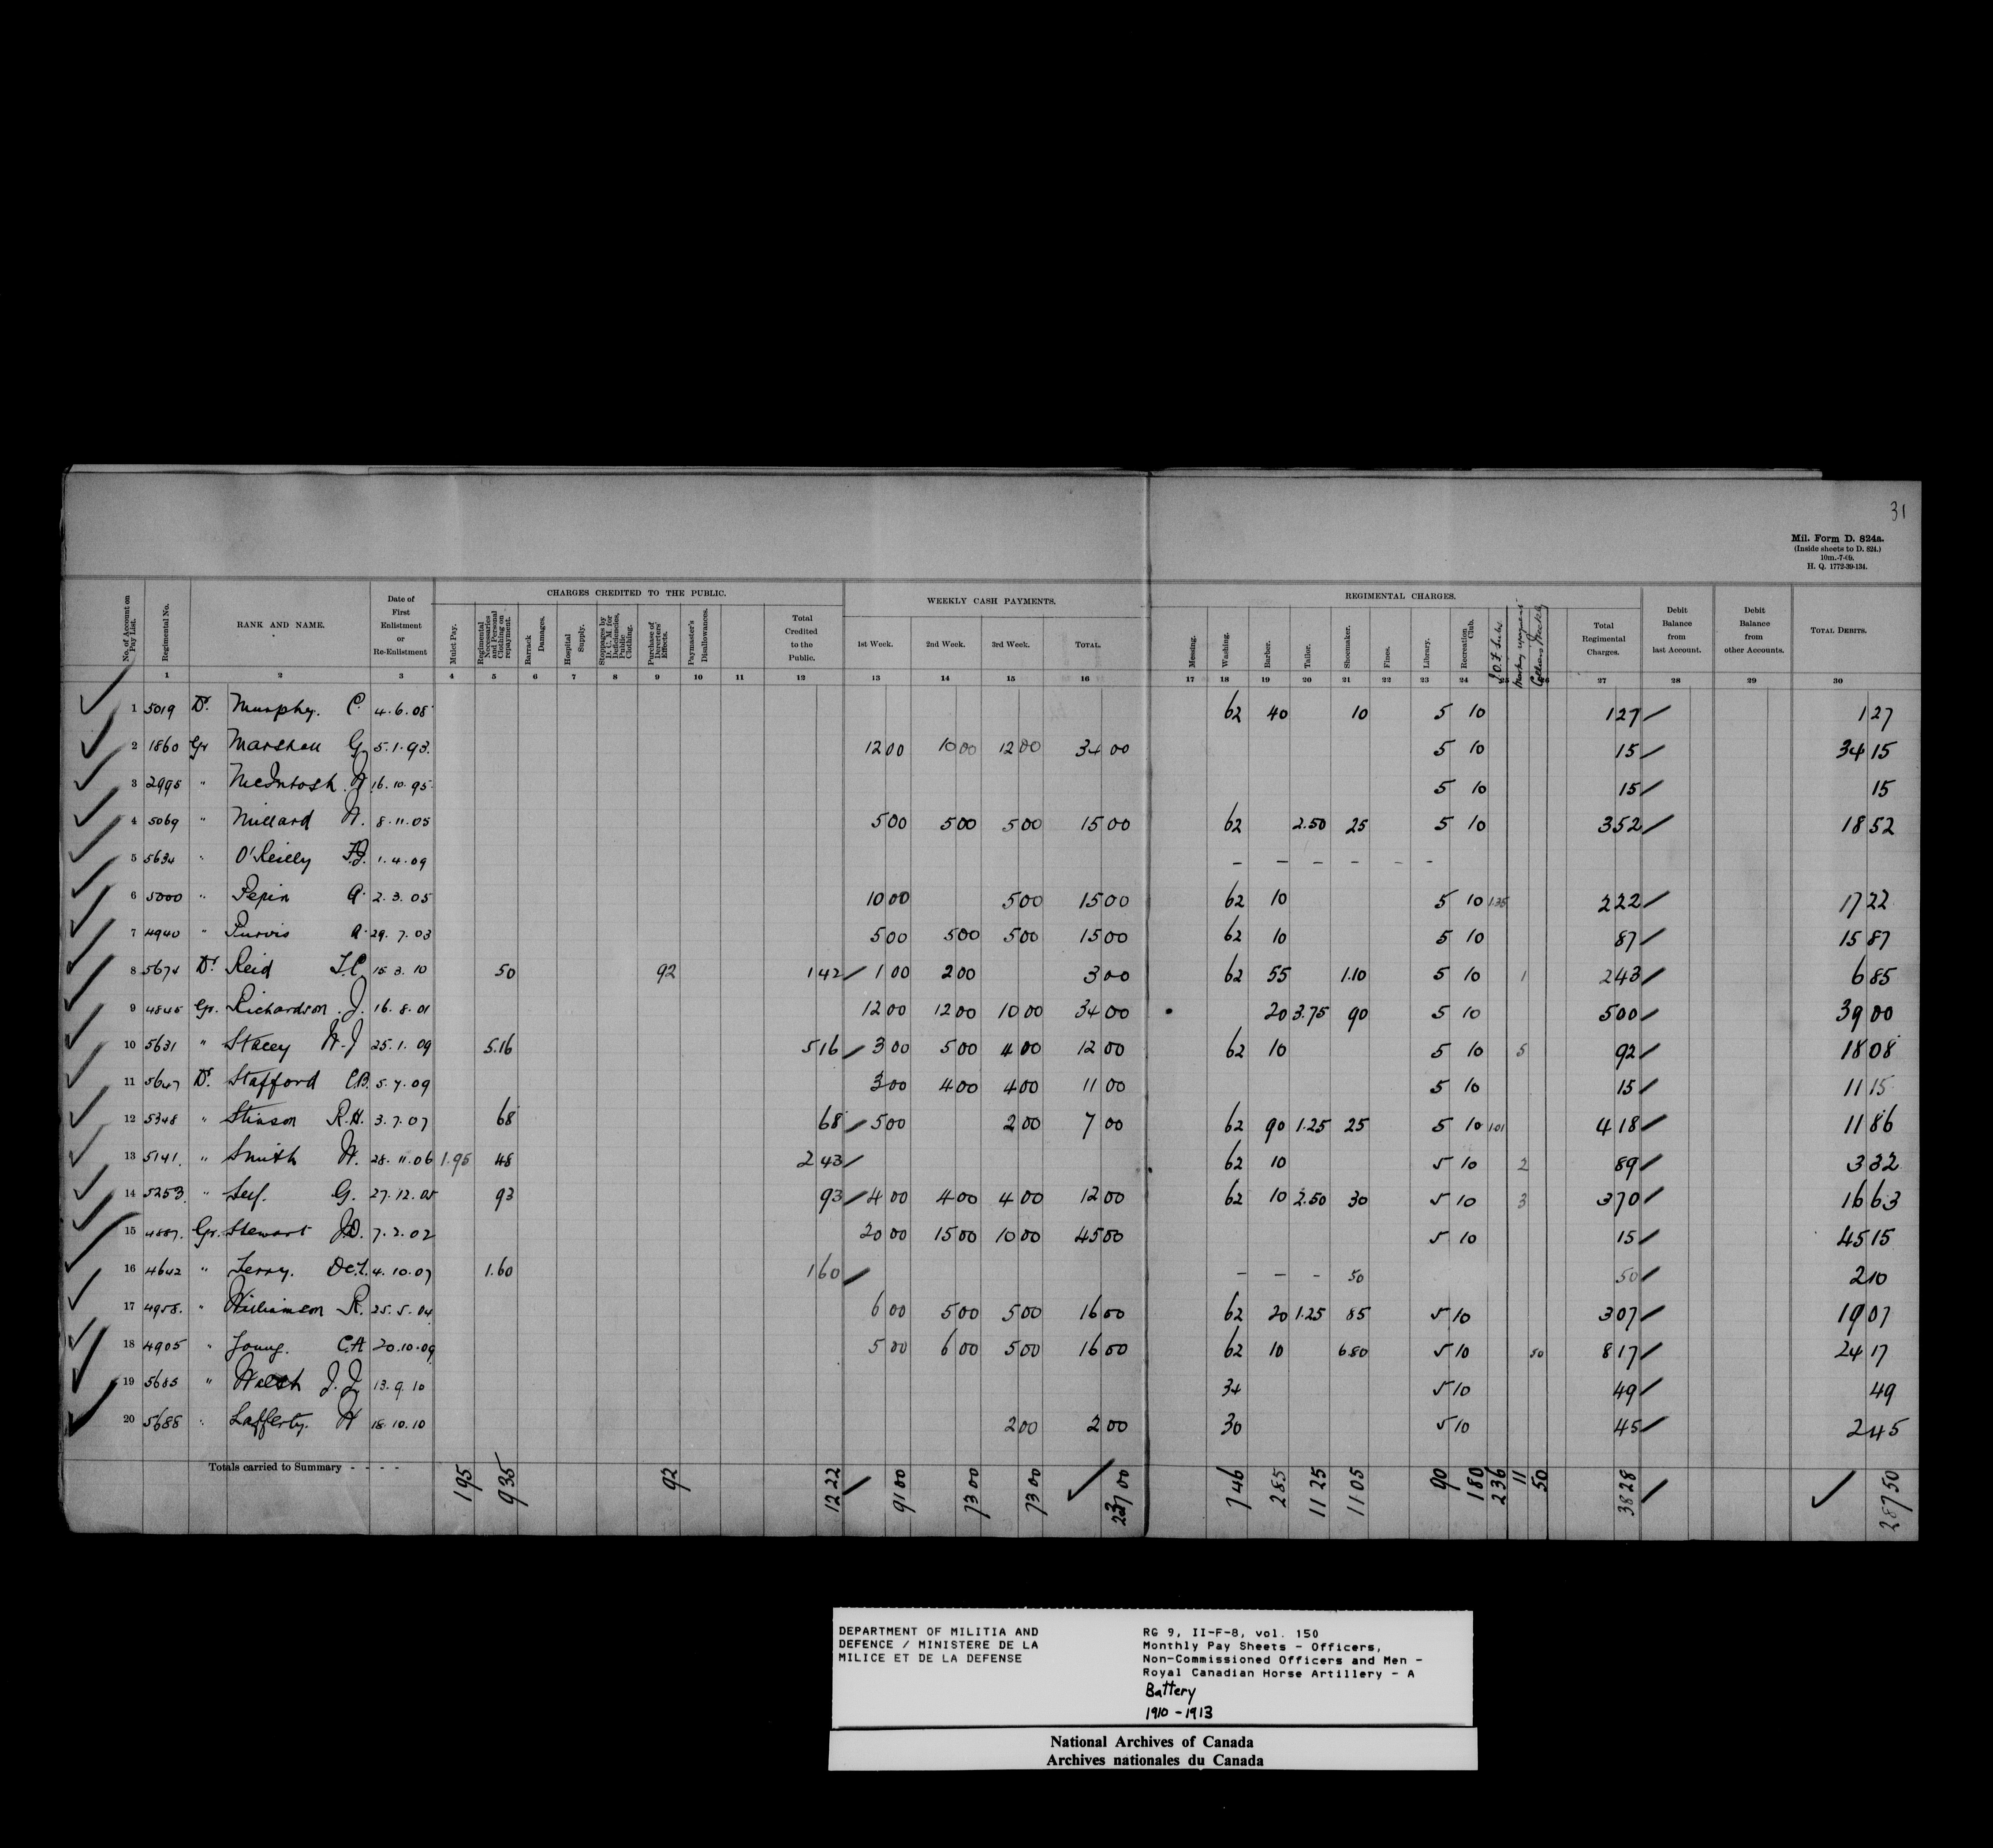 31
Mil. Form D. 824a.
(Inside sheets to D. 824.)
10m.-7-09.
H. Q. 1772-39-134.
CHARGES CREDITED TO THE PUBLIC. WEEKLY CASH PAYMENTS. REGIMENTAL CHARGES.
No. of Account on Pay List. Regimental No. RANK AND NAME. Date of First Enlistment or Re-Enlistment Mulct Pay. Regimental Necessaries and Personal Clothing on repayment. Barrack Damages. Hospital Supply. Stoppages by D. C. M. for Deficiencies, Public Clothing. Purchase of Deserters' Effects. Paymaster's Disallowances. Total Credited to the Public. 1st Week. 2nd Week. 3rd Week. TOTAL. Messing. Washing. Barber. Tailor. Shoemaker. Fines. Library. Recreation Club. Total Regimental Charges. Debit Balance from last Account. Debit Balance from other Accounts. TOTAL DEBITS.
1 2 3 4 5 6 7 8 9 10 11 12 13 14 15 16 17 18 19 20 21 22 23 24 27 28 29 30
1 5019 Dr. Murphy. C. 4.6.08 62 40 10 5 10 1 27 1 27
2 1860 Gr Marshall G 5.1.93. 12 00 10 00 12 00 34 00 5 10 15 34 15
3 2995 " McIntosh 16.10.95 5 10 15 15
4 5069 " Millard 8.11.05 5 00 5 00 5 00 15 00 62 2.50 25 5 10 3 52 18 52
5 5634 " O'Reilly F.J. 1.4.09 - - - - - -
6 5000 " Pepin A. 2.3.05 10 00 5 00 15 00 62 10 5 10 1.35 2 22 17 22
7 4940 " Purvis A. 29.7.03 5 00 5 00 5 00 15 00 62 10 5 10 87 15 87
8 5674 Dr Reid 15.3.10 50 92 1 42 1 00 2 00 3 00 62 55 1.10 5 10 1 2 43 6 85
9 4845 Gr. Richardson J. 16.8.01 12 00 12 00 10 00 34 00 20 3.75 90 5 10 5 00 39 00
10 5631 " Stacey 25.1.09 5.16 5 16 3 00 5 00 4 00 12 00 62 10 5 10 5 92 18 08
11 5647 Dr. Stafford C.B. 5.7.09 3 00 4 00 4 00 11 00 5 10 15 11 15
12 5348 " Stinson R.H. 3.7.07 68 68 5 00 2 00 7 00 62 90 1.25 25 5 10 1.01 4 18 11 86
13 5141. " Smith 28.11.06 1.95 48 2 43 62 10 5 10 2 89 3 32
14 5253. " G. 27.12.05 93 93 4 00 4 00 4 00 12 00 62 10 2.50 30 5 10 3 3 70 16 63
15 4887. Gr. Stewart J.D. 7.2.02 20 00 15 00 10 00 45 00 5 10 15 45 15
16 4642 " Terry. 4.10.07 1.60 1 60 - - - 50 50 2 10
17 4958. " Williamson R. 25.5.04 6 00 5 00 5 00 16 00 62 20 1.25 85 5 10 3 07 19 07
18 4905 " Young. C.A 20.10.09 5 00 6 00 5 00 16 00 62 10 6 80 5 10 50 8 17 24 17
19 5685 " Walsh J.J 13.9.10 34 5 10 49 49
20 5688 " Lafferty. 18.10.10 2 00 2 00 30 5 10 45 2 45
Totals carried to Summary - - - - 1 95 9 35 92 12 22 91 00 73 00 73 00 237 00 7 46 2 85 11 25 11 05 90 1 80 2 36 11 50 38 28 287 50
DEPARTMENT OF MILITIA AND
DEFENCE / MINISTERE DE LA
MILICE ET DE LA DEFENSE
RG 9, II-F-8, vol. 150
Monthly Pay Sheets - Officers,
Non-Commissioned Officers and Men -
Royal Canadian Horse Artillery - A
Battery
1910 - 1913
National Archives of Canada
Archives nationales du Canada